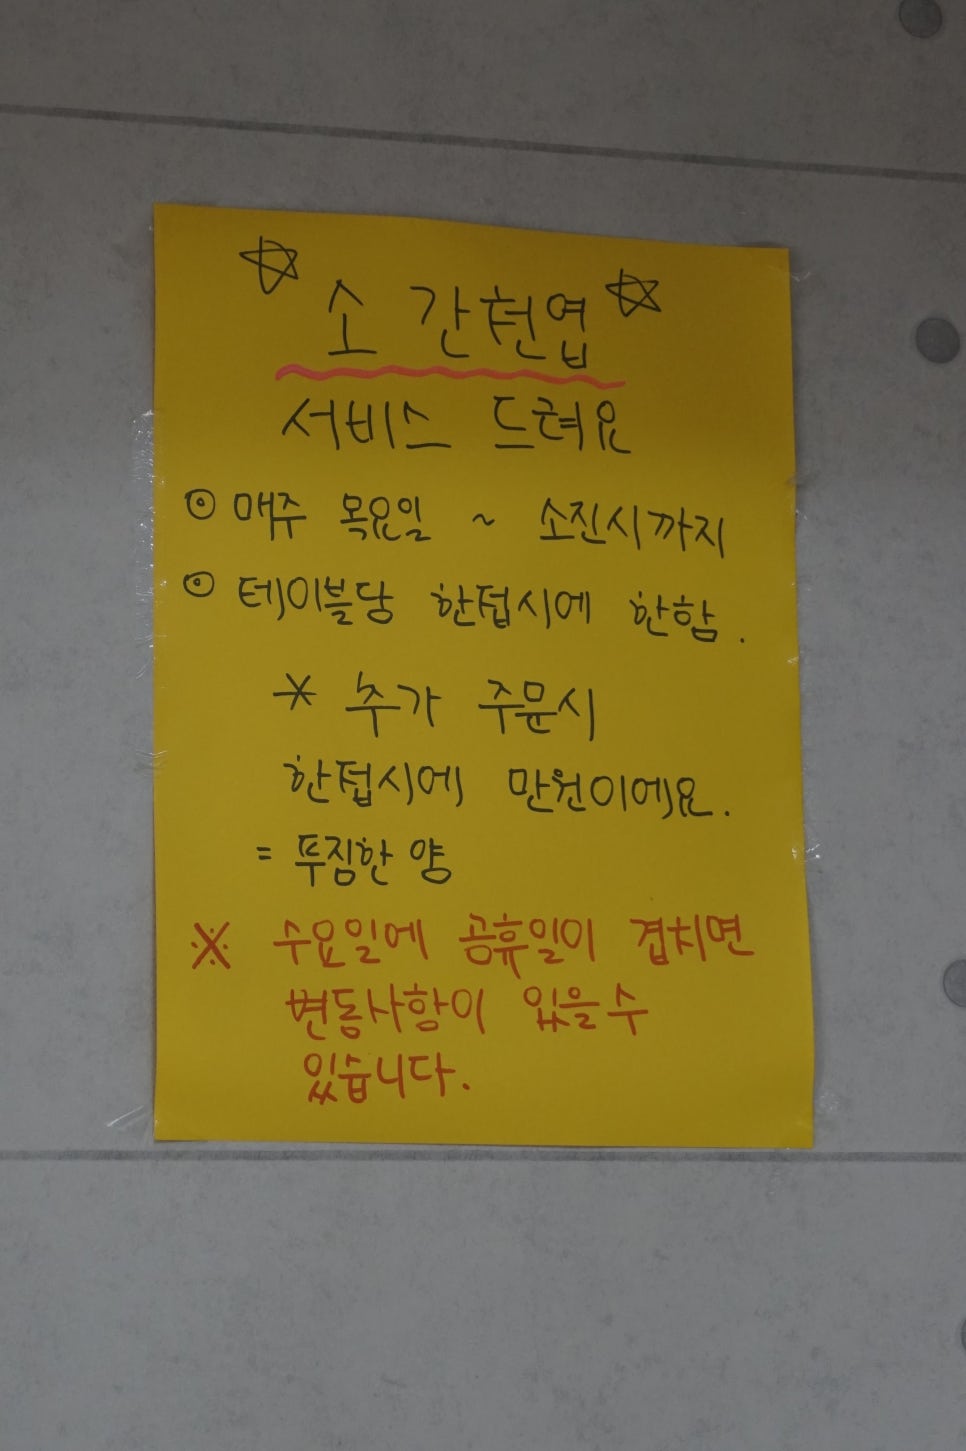 ☆ 소 간천엽 ☆
서비스 드려요
⊙ 매주 목요일 ~ 소진시까지
⊙ 테이블당 한접시에 한함.
* 추가 주문시
한접시에 만원이에요.
= 푸짐한 양
※ 수요일에 공휴일이 겹치면
변동사항이 있을수
있습니다.